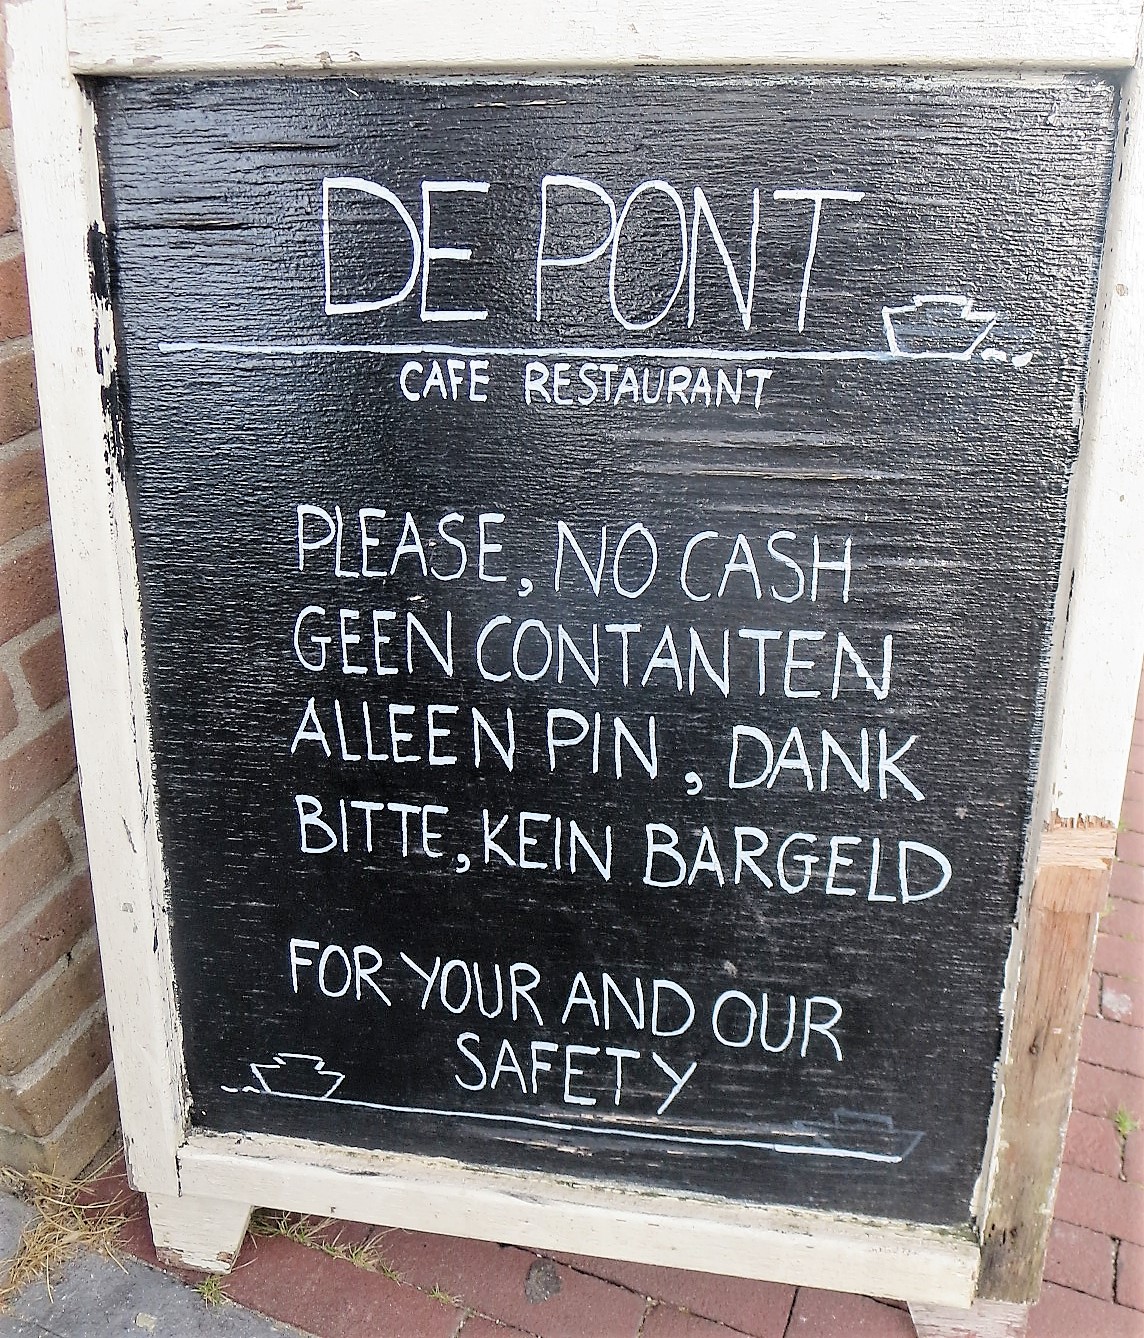 DE PONT
CAFE RESTAURANT
PLEASE, NO CASH
GEEN CONTANTEN
ALLEEN PIN, DANK
BITTE, KEIN BARGELD
FOR YOUR AND OUR
SAFETY